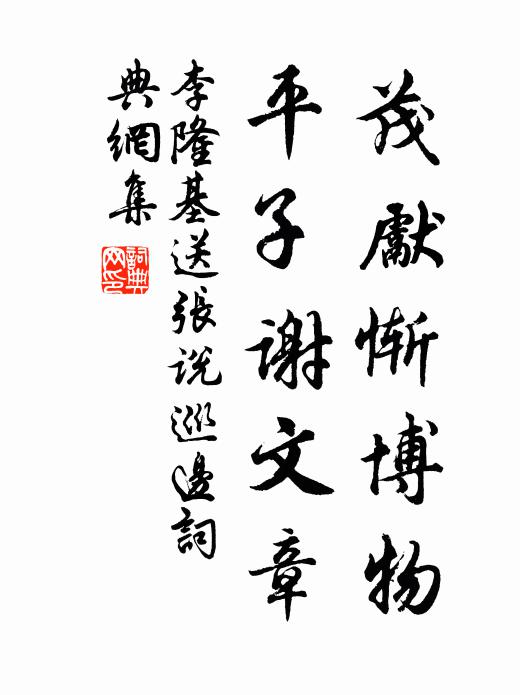 茂獻惭博物
平子谢文章
李隆基送張说巡邊詞
典網集
詞典网印